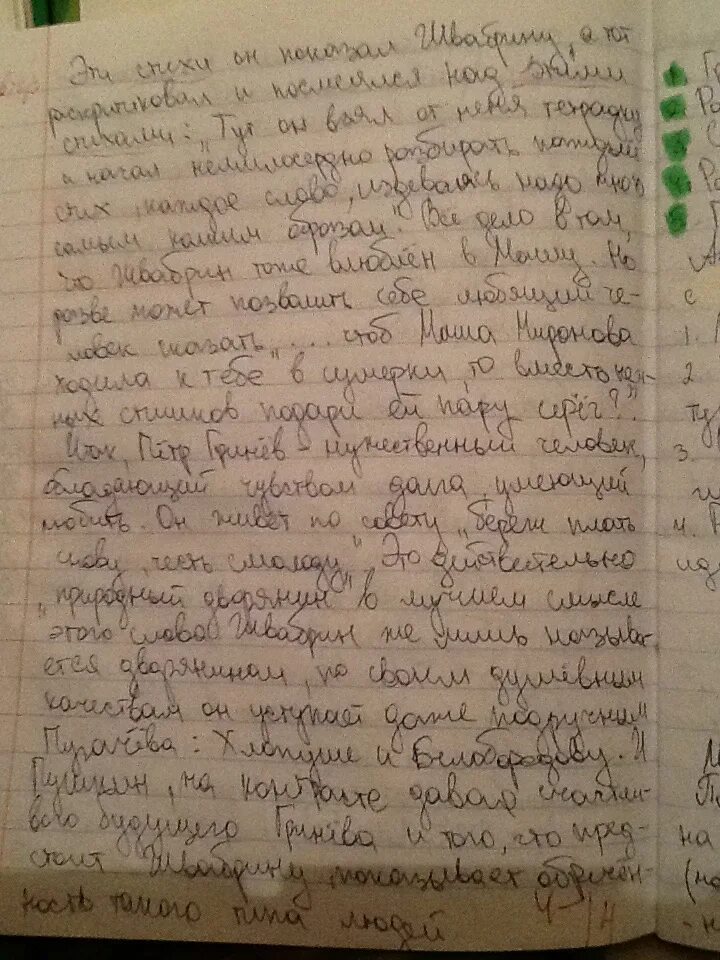 Эти стихи он показал Швабрину, а тот
раскритиковал и посмеялся над этими
стихами: „Тут он взял от меня тетрадку
и начал немилосердно разбирать каждый
стих, каждое слово, издеваясь надо мной
самым колким образом". Всё дело в том,
что Швабрин тоже влюблён в Машу. Но
разве может позволить себе любящий че-
ловек сказать „... чтоб Маша Миронова
ходила к тебе в сумерки, то вместо неж-
ных стишков подари ей пару серёг?".
Итак, Пётр Гринёв - мужественный человек,
обладающий чувством долга, умеющий
любить. Он живёт по совету „береги платье
снову, честь смолоду". Это действительно
„природный дворянин" в лучшем смысле
этого слова. Швабрин же лишь называ-
ется дворянином, по своим душевным
качествам он уступает даже подручным
Пугачёва: Хлопуше и Белобородову. И
Пушкин, на контрасте давая счастли-
вого будущего Гринёва и того, что пред-
стоит Швабрину, показывает обречён-
ность такого типа людей
1.
2
3.
4.